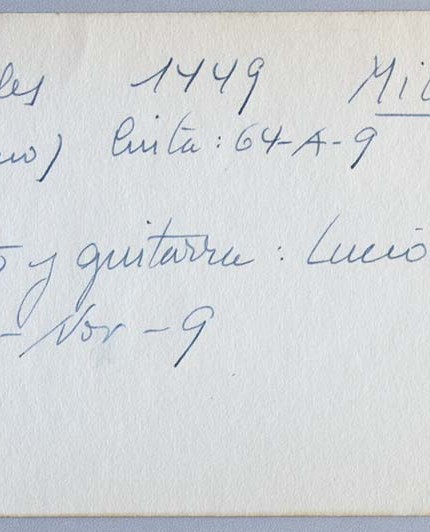 les 1449 Mi
no) Cinta: 64-A-9
o y guitarra: Lucio
- Nov - 9